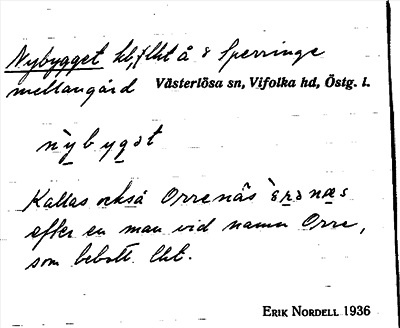 Nybygget hb, f.lht å 8 Sperringe
mellangård Västerlösa sn, Vifolka hd, Östg. l.
nybygət
Kallas också Orrenäs òrənæs
efter en man vid namn Orre,
som bebott lht.
ERIK NORDELL 1936